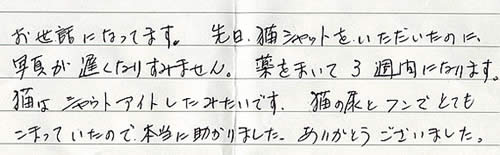 お世話になってます。 先日、猫シャットを、いただいたのに、
写真が遅くなりすみません。 薬をまいて3週内になります。
猫は シャットアイトしたみたいです。 猫の尿とフンでとても
こまっていたので、本当に助かりました。ありがとうございました。